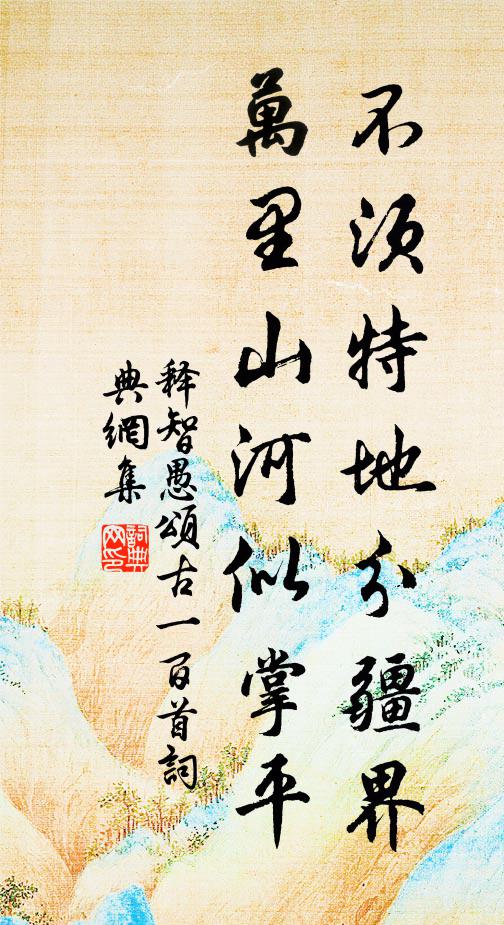 不須特地分疆界
萬里山河似掌平
释智愚頌古一百首詞
典網集
詞典
网印